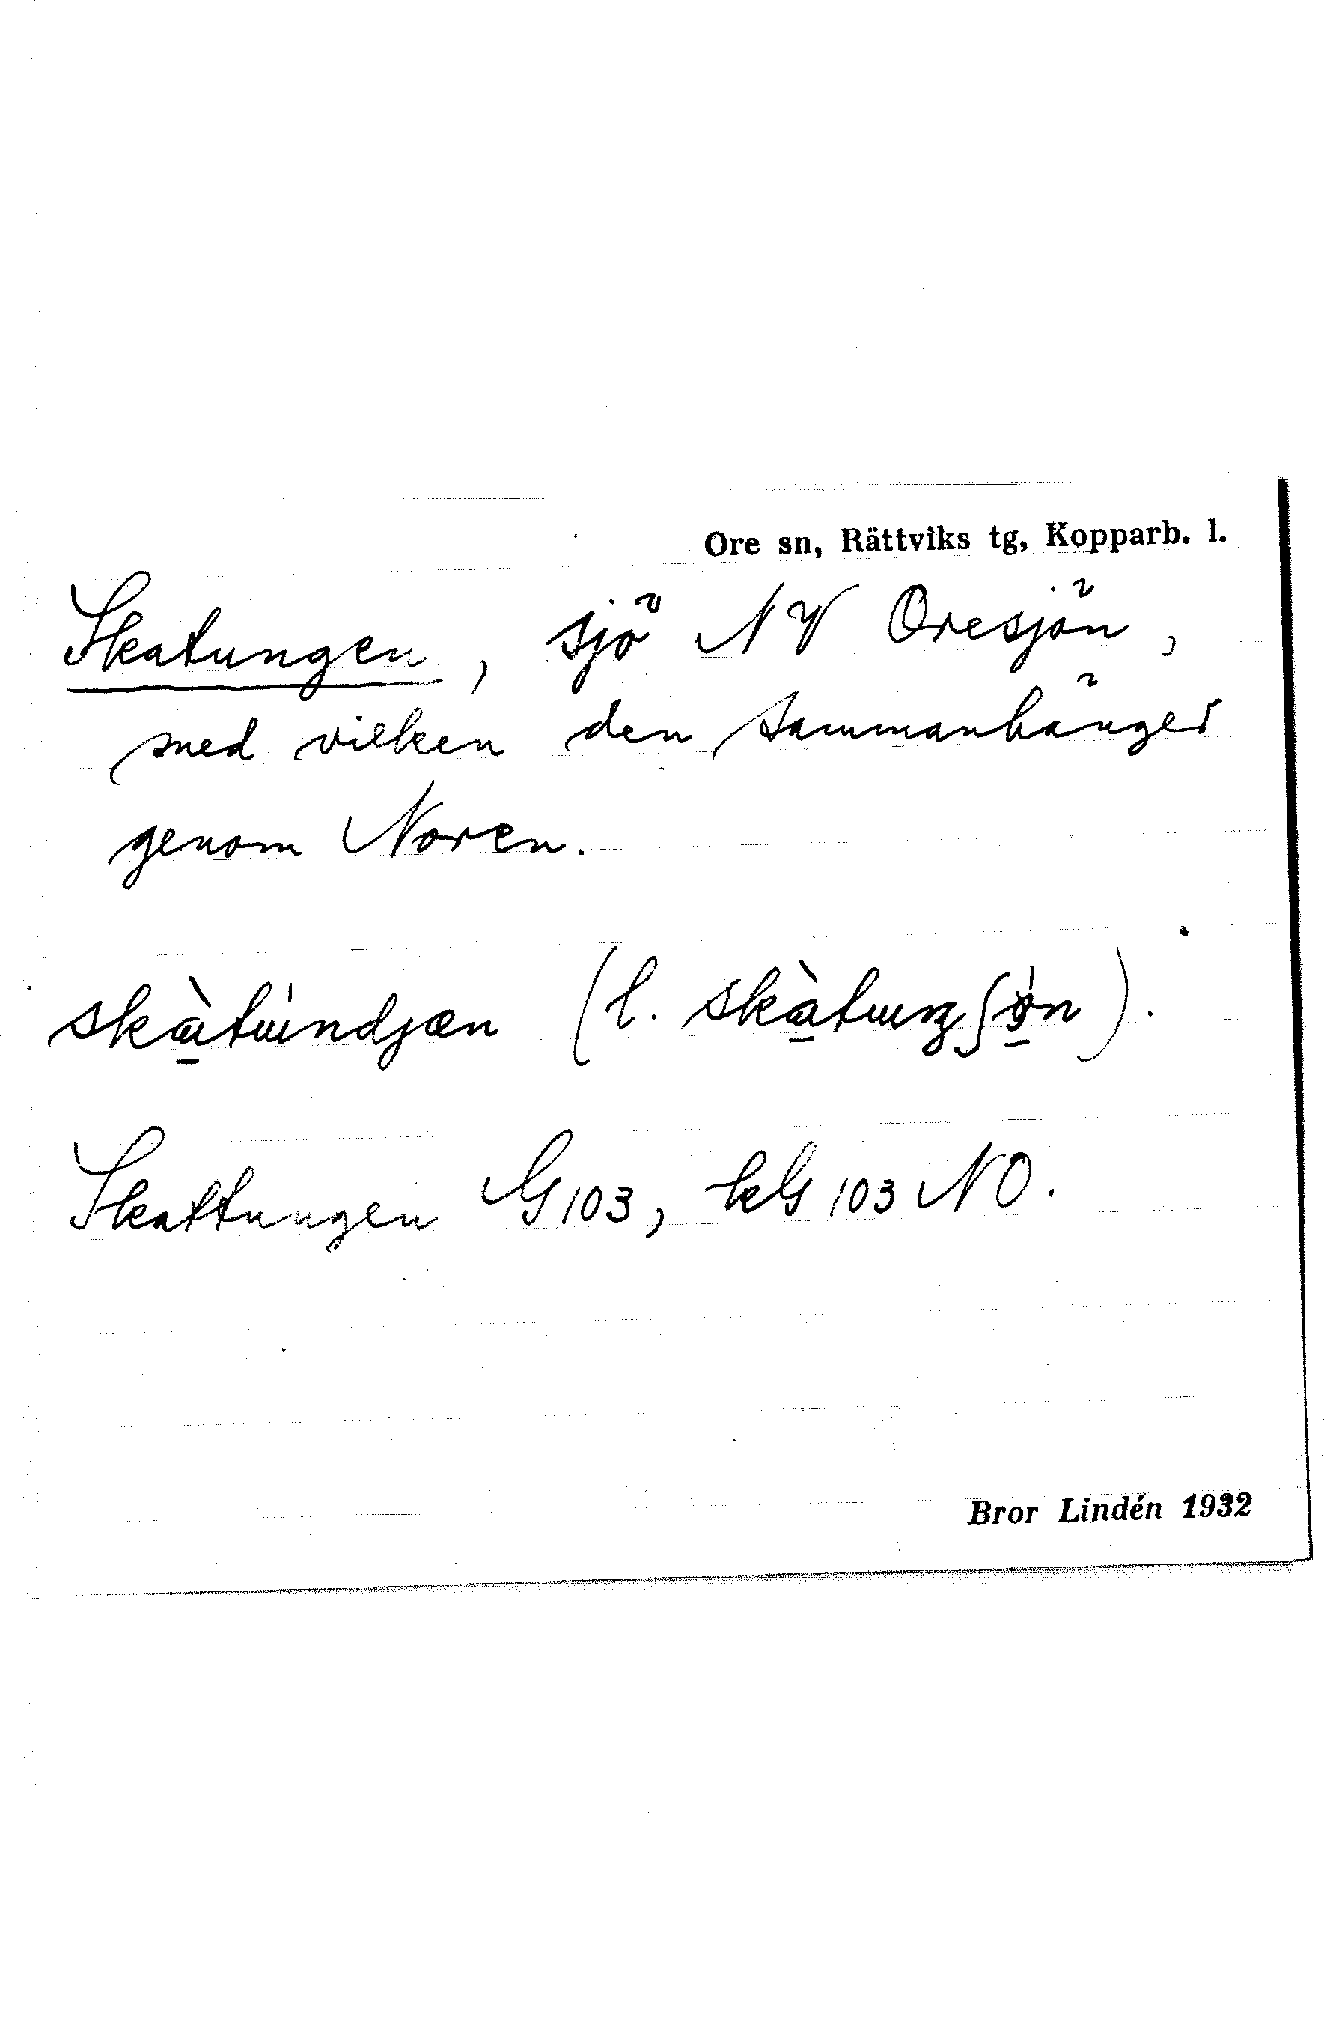 Ore sn, Rättviks tg, Kopparb. l.
Skatungen, sjö NV Oresjön,
med vilken den sammanhänger
genom Noren.
skàtúndjæn (l. skàtuŋʃø̀n).
Skattungen G103, kG103 NO.
Bror Lindén 1932